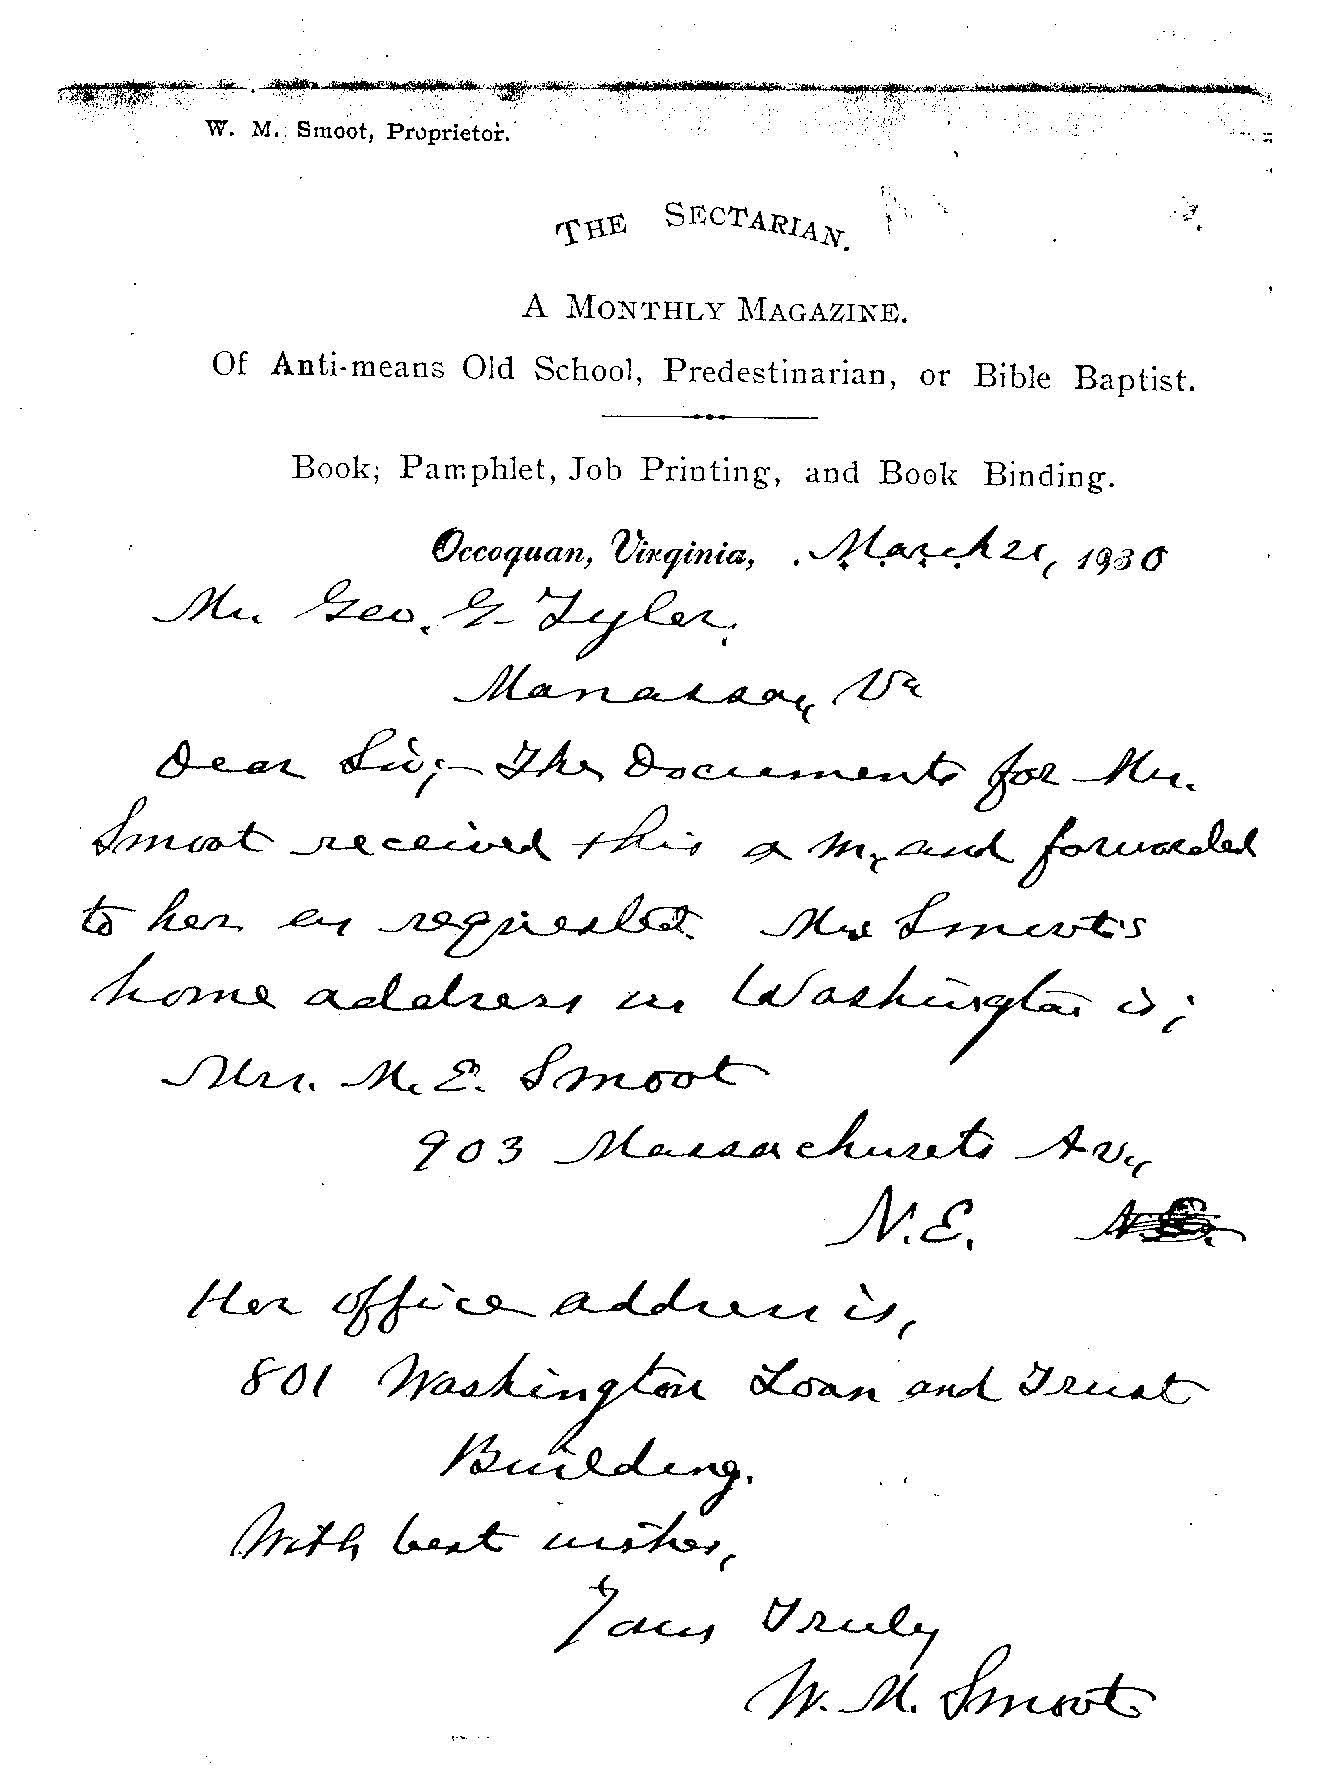 W. M. Smoot, Proprietor.
THE SECTARIAN.
A MONTHLY MAGAZINE.
Of Anti-means Old School, Predestinarian, or Bible Baptist.
Book; Pamphlet, Job Printing, and Book Binding.
Occoquan, Virginia, March 21, 1930
Mr. Geo. G. Tyler,
Manassas, Va
Dear Sir;- The Documents for Mrs.
Smoot received this a m, and forwarded
to her as requested. Mrs Smoot's
home address in Washington is;
Mrs. M. E. Smoot
903 Massachusets Av.,
N.E. N.E.
Her office address is,
801 Washington Loan and Trust
Building.
With best wishes,
Yours Truly
W. M. Smoot